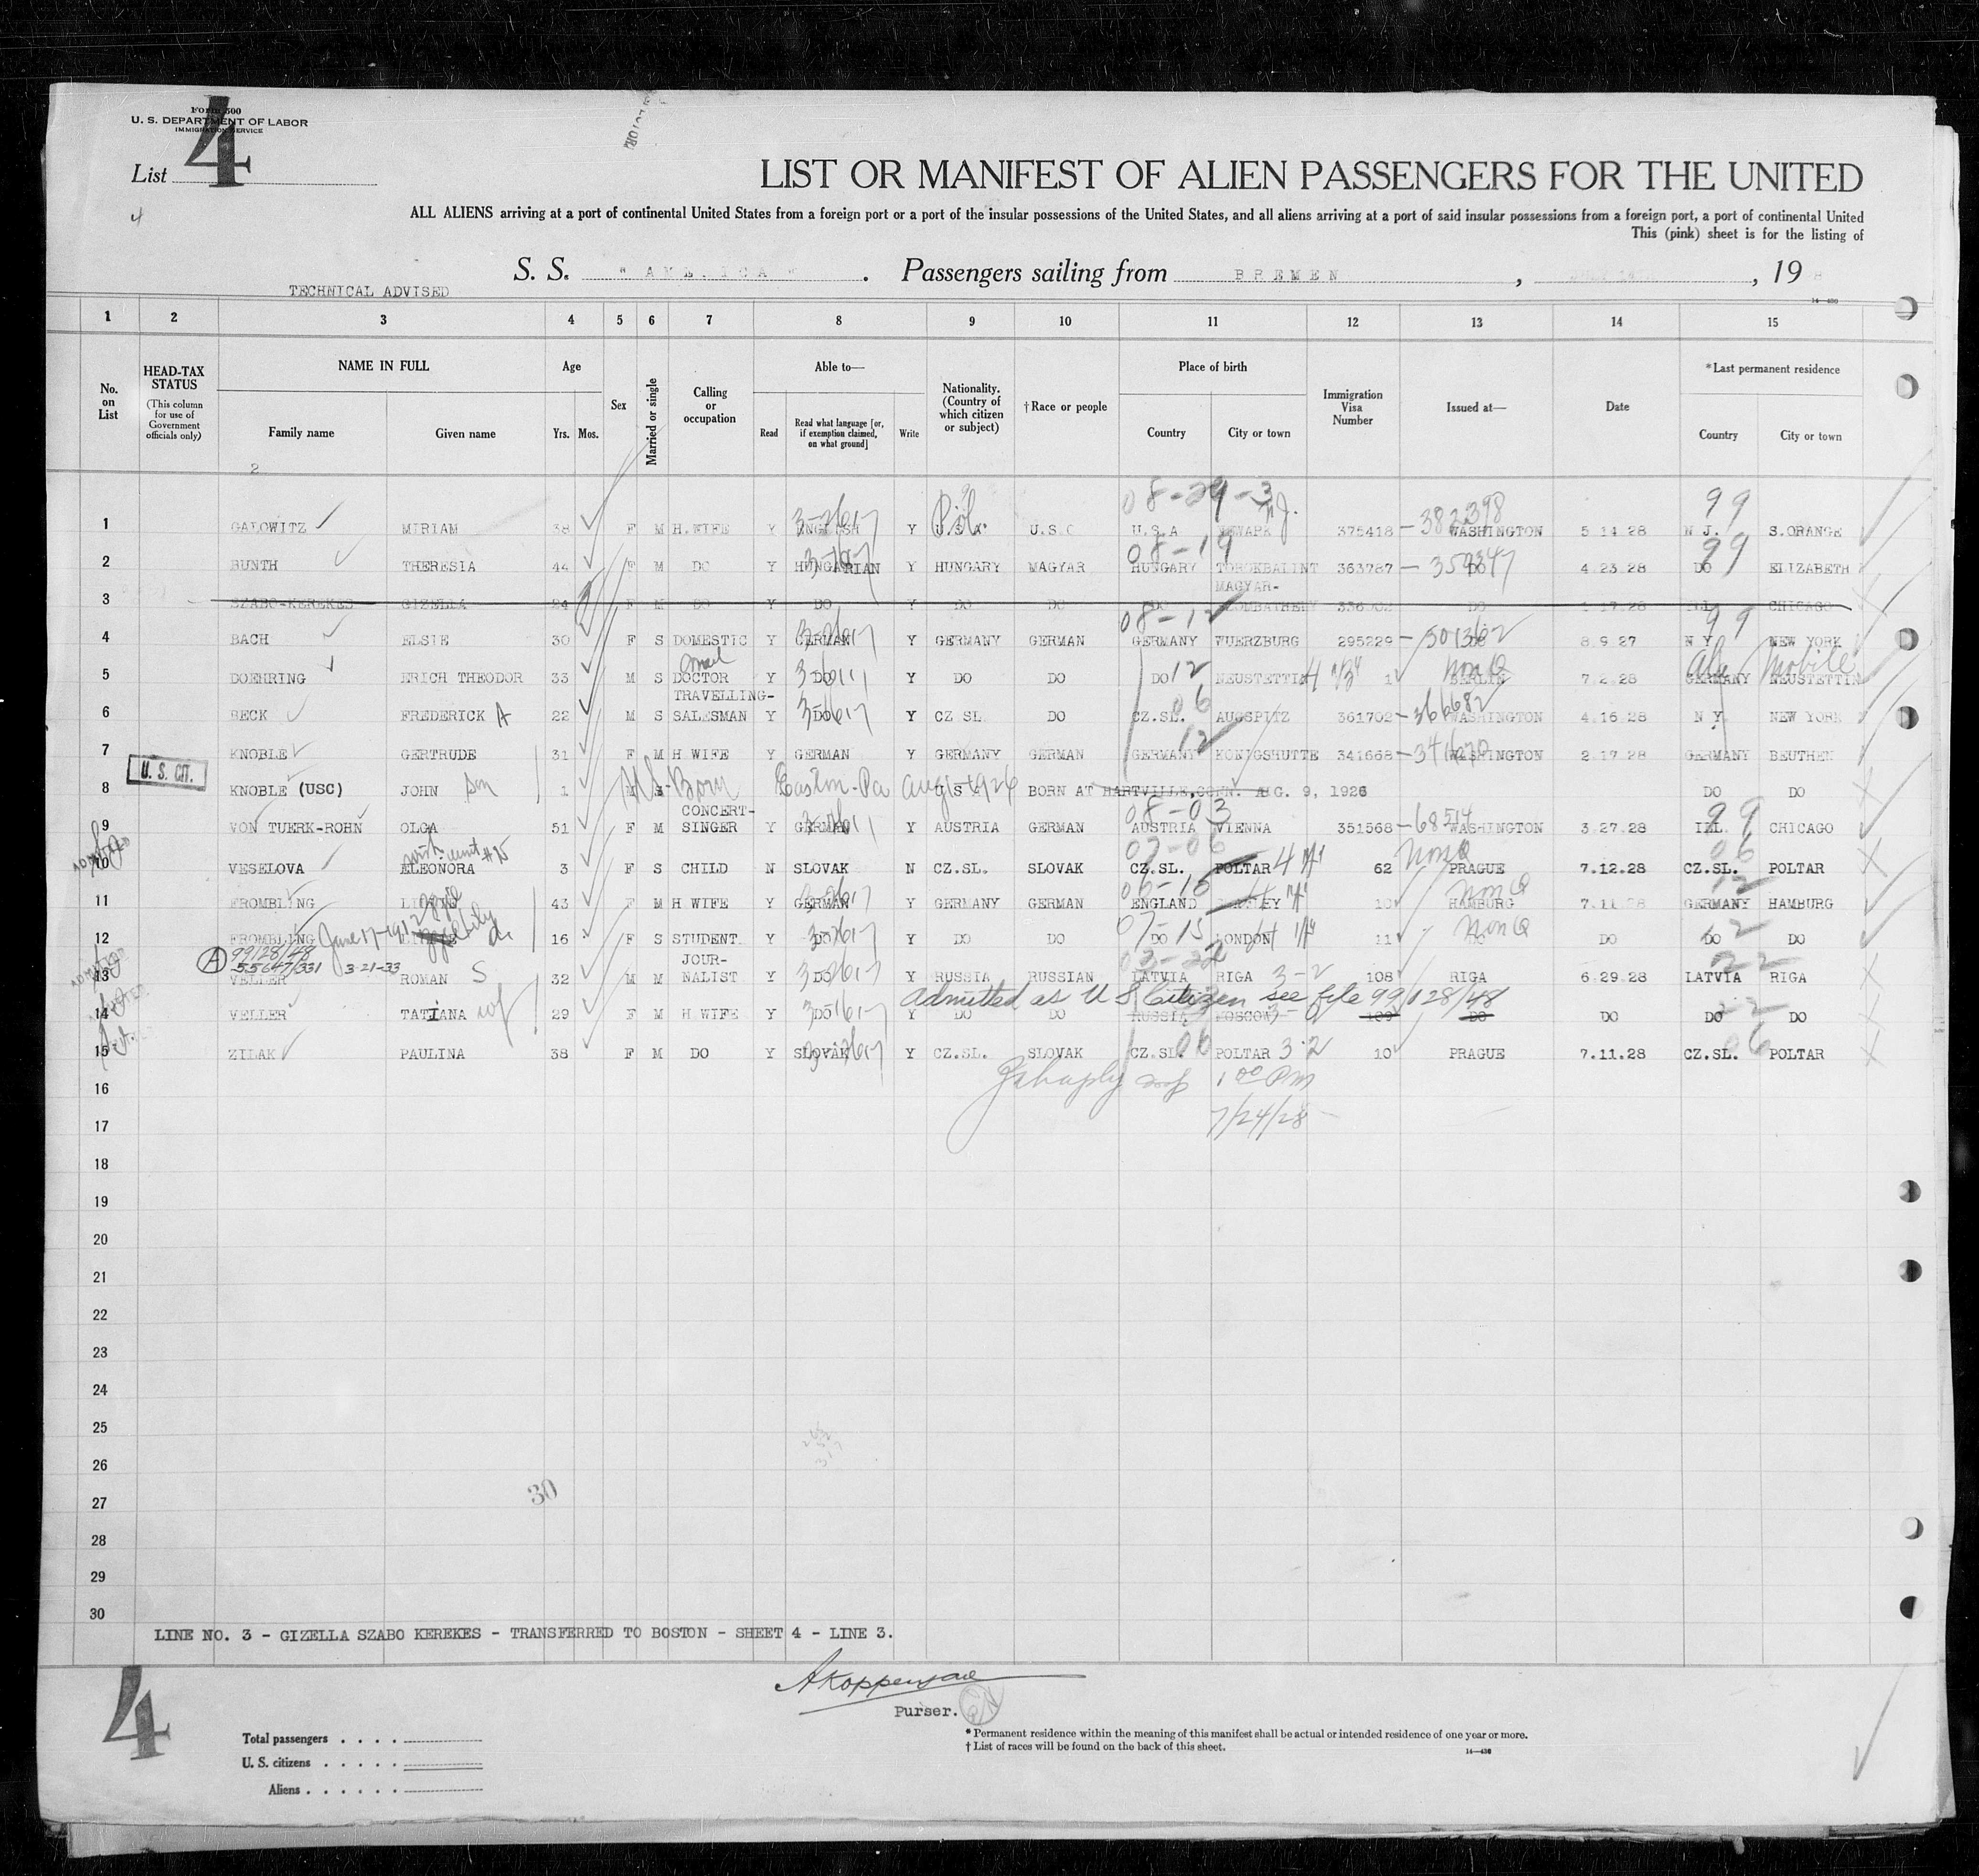 Form 500
U. S. DEPARTMENT OF LABOR
IMMIGRATION SERVICE
List 4
4
LIST OR MANIFEST OF ALIEN PASSENGERS FOR THE UNITED
ALL ALIENS arriving at a port of continental United States from a foreign port or a port of the insular possessions of the United States, and all aliens arriving at a port of said insular possessions from a foreign port, a port of continental United
This (pink) sheet is for the listing of
S. S. "AMERICA". Passengers sailing from BREMEN, 19
TECHNICAL ADVISED
14—430
1 2 3 4 5 6 7 8 9 10 11 12 13 14 15
No. on List
HEAD-TAX STATUS (This column for use of Government officials only)
NAME IN FULL Family name Given name
Age Yrs. Mos.
Sex
Married or single
Calling or occupation
Able to— Read Read what language [or, if exemption claimed, on what ground] Write
Nationality. (Country of which citizen or subject)
†Race or people
Place of birth Country City or town
Immigration Visa Number
Issued at—
Date
*Last permanent residence Country City or town
2
08-29-3 99
1 GALOWITZ MIRIAM 38 F M H.WIFE Y ENGLISH Y U.S.C U.S.A NEWARK N.J. 375418 - 382398 WASHINGTON 5 14 28 N J. S.ORANGE
08-19 99
2 BUNTH THERESIA 44 F M DO Y HUNGARIAN Y HUNGARY MAGYAR HUNGARY TOROKBALINT 363787 - 359347 DO 4.23.28 DO ELIZABETH
MAGYAR-
3 SZABO-KEREKES GIZELLA 24 F M DO Y DO Y DO DO DO SZOMBATHELY DO 1 17.28 ILL CHICAGO
08-12 99
4 BACH ELSIE 30 F S DOMESTIC Y GERMAN Y GERMANY GERMAN GERMANY WUERZBURG 295229 - 301362 DO 8 9 27 N Y NEW YORK
5 DOEHRING ERICH THEODOR 33 M S DOCTOR Y DO Y DO DO DO 12 NEUSTETTIN 1 Non Q BERLIN 7.2.28 GERMANY NEUSTETTIN Ala Mobile
TRAVELLING- 06
6 BECK FREDERICK A 22 M S SALESMAN Y DO Y CZ SL. DO CZ.SL. AUGSPITZ 361702 - 366682 WASHINGTON 4.16.28 N Y NEW YORK
12
7 KNOBLE GERTRUDE 31 F M H WIFE Y GERMAN Y GERMANY GERMAN GERMANY KONIGSHUTTE 341668 WASHINGTON 2.17.28 GERMANY BEUTHEN
U. S. CIT.
8 KNOBLE (USC) JOHN son 1 M S U.S. Born Easton-Pa Aug 1926 U S BORN AT HARTVILLE,CONN. AUG. 9, 1926 DO DO
CONCERT- 08-03 99
9 VON TUERK-ROHN OLGA 51 F M SINGER Y GERMAN Y AUSTRIA GERMAN AUSTRIA VIENNA 351568 - 68514 WASHINGTON 3.27.28 ILL CHICAGO
with aunt #15 07-06 Non Q 06
10 ADMITTED VESELOVA ELEONORA 3 F S CHILD N SLOVAK N CZ.SL. SLOVAK CZ.SL. POLTAR 62 PRAGUE 7.12.28 CZ.SL. POLTAR
06-15 Non Q 12
11 FROMBLING 43 F M H WIFE Y GERMAN Y GERMANY GERMAN ENGLAND 10 HAMBURG 7.11.28 GERMANY HAMBURG
07-15 Non Q 12
12 FROMBLING June 17-1912 16 F S STUDENT Y DO Y DO DO DO LONDON 11 DO DO DO DO
A 99128/48
55647/331 3-21-33
JOUR- 03-22 22
13 ADMITTED VELLER ROMAN S 32 M M NALIST Y DO Y RUSSIA RUSSIAN LATVIA RIGA 3-2 108 RIGA 6.29.28 LATVIA RIGA
Admitted as U S Citizen see file 99128/48
14 VELLER TATIANA wf 29 F M H WIFE Y DO Y DO DO RUSSIA MOSCOW 109 DO DO DO DO
15 ZILAK PAULINA 38 F M DO Y SLOVAK Y CZ.SL. SLOVAK CZ.SL. 06 POLTAR 3-2 10 PRAGUE 7.11.28 CZ.SL. POLTAR
16 1 00 PM
17 7/24/28
18
19
20
21
22
23
24
25
26
27 30
28
29
30
LINE NO. 3 - GIZELLA SZABO KEREKES - TRANSFERRED TO BOSTON - SHEET 4 - LINE 3.
4
Purser.
Total passengers . . . .
U. S. citizens . . . . .
Aliens . . . . . .
* Permanent residence within the meaning of this manifest shall be actual or intended residence of one year or more.
† List of races will be found on the back of this sheet.
14—430